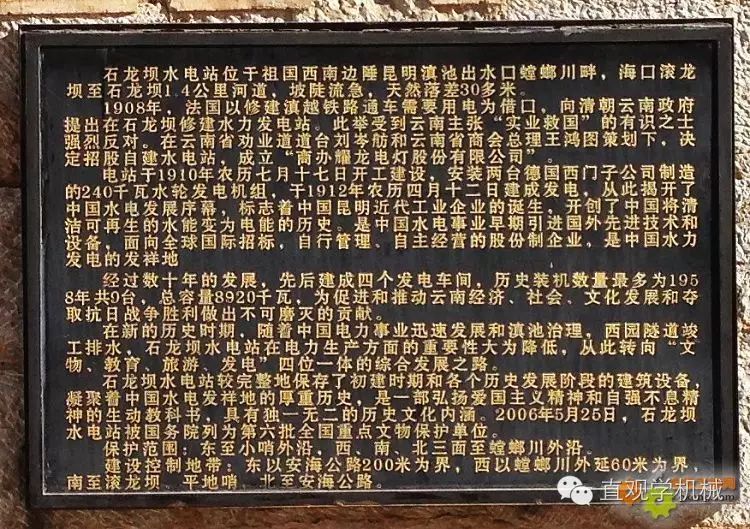 石龙坝水电站位于祖国西南边陲昆明滇池出水口螳螂川畔，海口滚龙
坝至石龙坝1.4公里河道，坡陡流急，天然落差30多米。
1908年，法国以修建滇越铁路通车需要用电为借口，向清朝云南政府
提出在石龙坝修建水力发电站。此举受到云南主张“实业救国”的有识之士
强烈反对。在云南省劝业道道台刘岑舫和云南省商会总理王鸿图策划下，决
定招股自建水电站，成立“商办耀龙电灯股份有限公司”。
电站于1910年农历七月十七日开工建设，安装两台德国西门子公司制造
的240千瓦水轮发电机组，于1912年农历四月十二日建成发电，从此揭开了
中国水电发展序幕，标志着中国昆明近代工业企业的诞生，开创了中国将清
洁可再生的水能变为电能的历史。是中国水电事业早期引进国外先进技术和
设备，面向全球国际招标，自行管理、自主经营的股份制企业，是中国水力
发电的发祥地
经过数十年的发展，先后建成四个发电车间，历史装机数量最多为195
8年共9台，总容量8920千瓦，为促进和推动云南经济、社会、文化发展和夺
取抗日战争胜利做出不可磨灭的贡献。
在新的历史时期，随着中国电力事业迅速发展和滇池治理，西园隧道竣
工排水，石龙坝水电站在电力生产方面的重要性大为降低，从此转向“文
物、教育、旅游、发电”四位一体的综合发展之路。
石龙坝水电站较完整地保存了初建时期和各个历史发展阶段的建筑设备，
凝聚着中国水电发祥地的厚重历史，是一部弘扬爱国主义精神和自强不息精
神的生动教科书，具有独一无二的历史文化内涵。2006年5月25日，石龙坝
水电站被国务院列为第六批全国重点文物保护单位。
保护范围：东至小哨外沿，西、南、北三面至螳螂川外沿。
建设控制地带：东以安海公路200米为界，西以螳螂川外延60米为界，
南至滚龙坝、平地哨，北至安海公路。
直观学机械